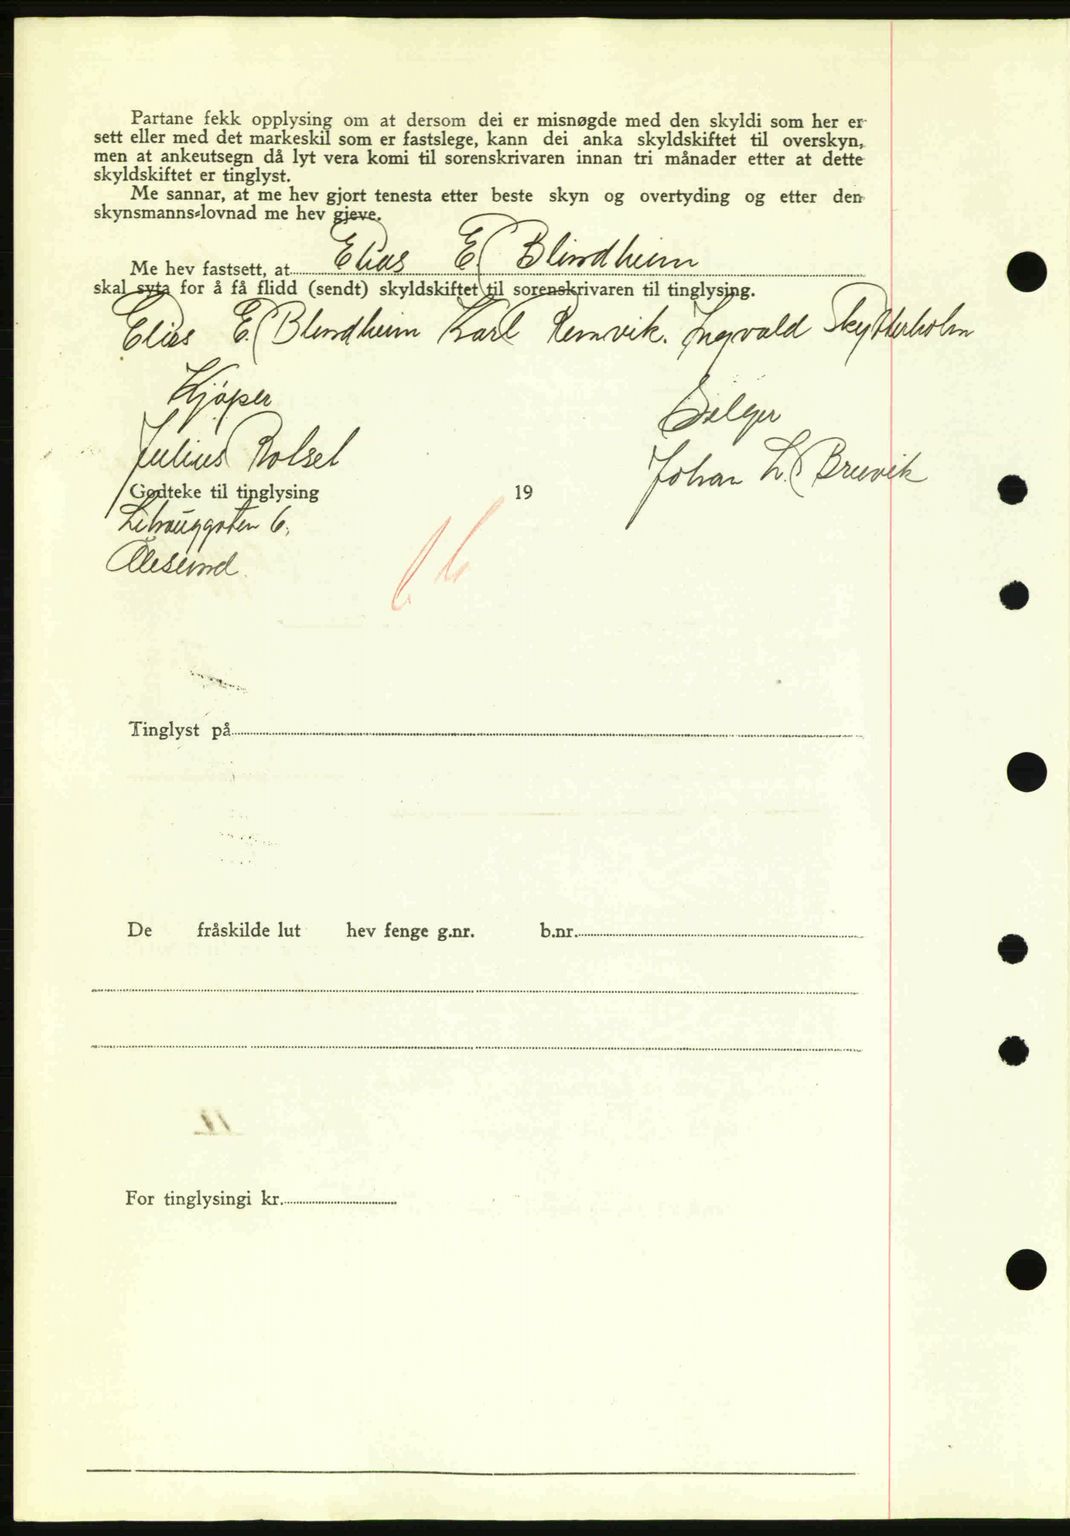 Partane fekk opplysing om at dersom dei er misnøgde med den skyldi som her er
sett eller med det markeskil som er fastslege, kann dei anka skyldskiftet til overskyn,
men at ankeutsegn då lyt vera komi til sorenskrivaren innan tri månader etter at dette
skyldskiftet er tinglyst.
Me sannar, at me hev gjort tenesta etter beste skyn og overtyding og etter den
skynsmanns-lovnad me hev gjeve.
Me hev fastsett, at Elias E. Blindheim
skal syta for å få flidd (sendt) skyldskiftet til sorenskrivaren til tinglysing.
Elias E. Blindheim Karl Remvik. Ingvald Skytterholm
Kjøper Selger
Julius Rolset Johan L. Breivik
Godteke til tinglysing 19
6,
Ålesund.
Tinglyst på
De fråskilde lut hev fenge g.nr. b.nr.
For tinglysingi kr.